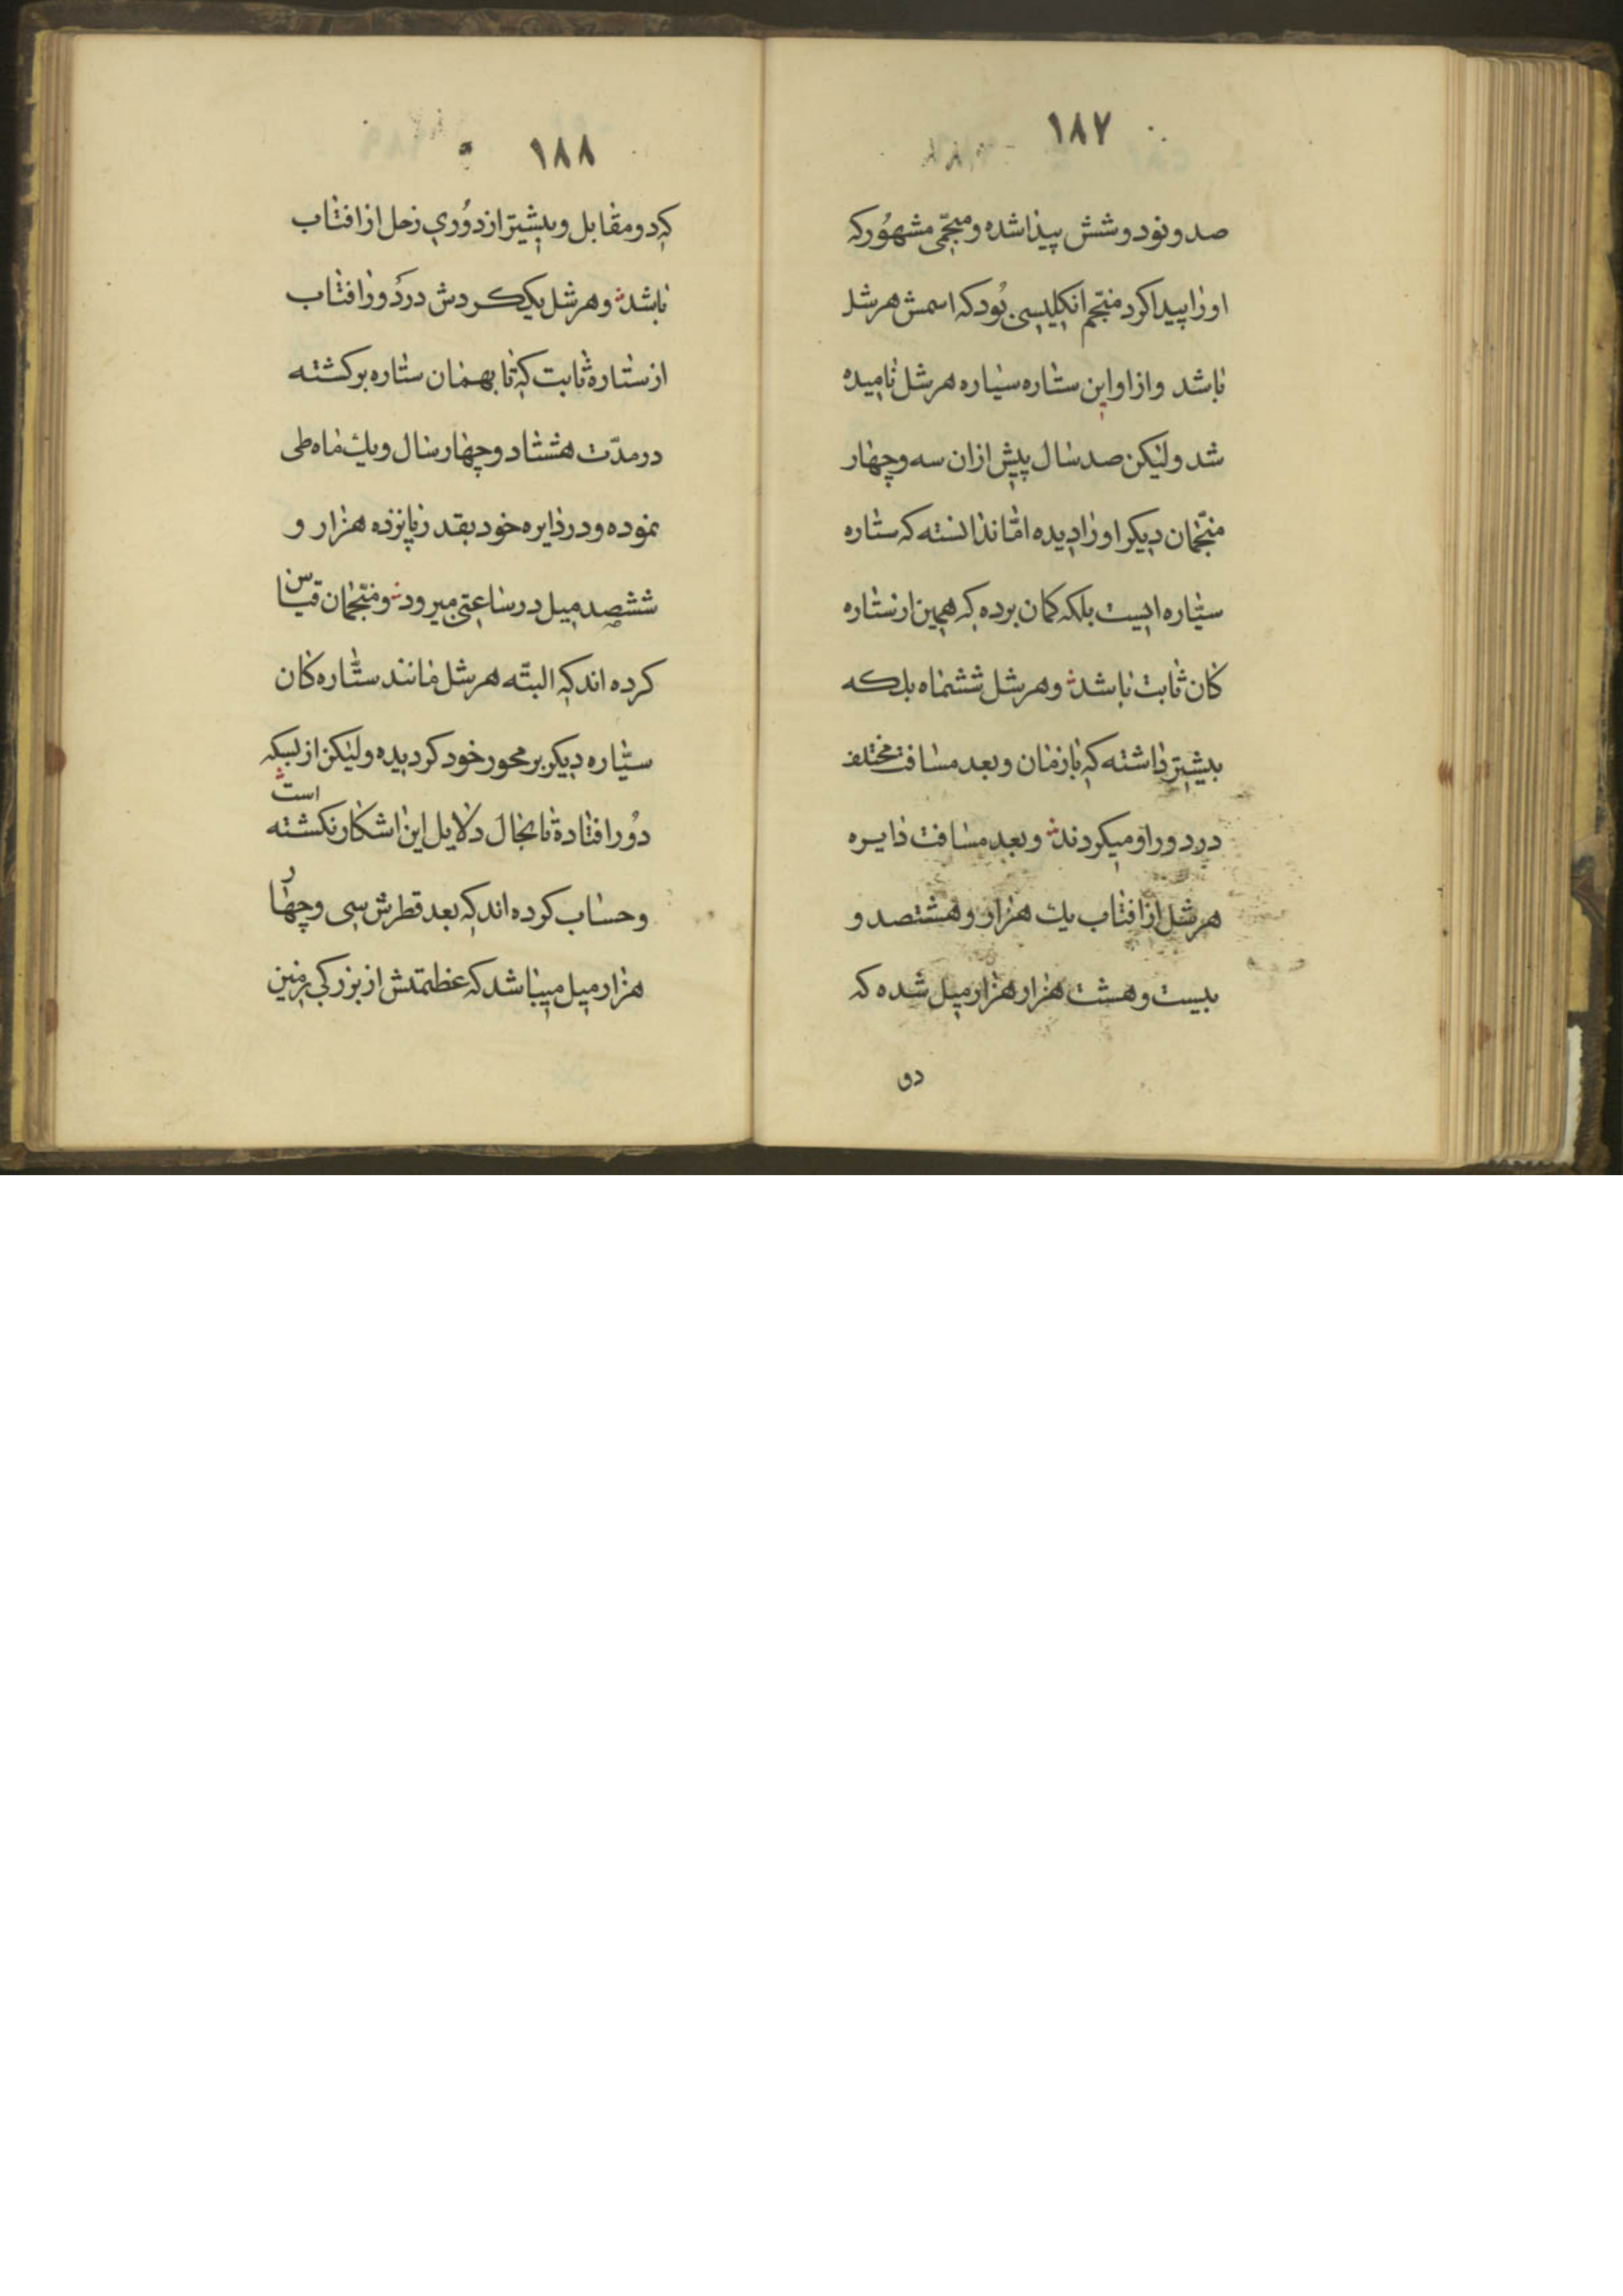 ۱۸۷
صد و نود و شش پیدا شده و منجّمی مشهُور که
او را پیدا کرد منجّم انکلیسی بُود که اسمش هرشل
باشد و از او این ستاره سیاره هرشل نامیده
شد ولیکن صد سال پیش از ان سه و چهار
منجّمان دیکر او را دیده امّا ندانسته که ستاره
سیّاره ایست بلکه کمان برده که همین از ستاره
کان ثابت باشد و هرشل ششماه بلکه
بیشتر داشته که با زمان و بعد مسافت مختلف
در دور او میکردند و بعد مسافت دایره
هرشل از افتاب یک هزار و هشتصد و
بیست و هشت هزار هزار میل شده که
دو
۱۸۸
که دو مقابل و بیشتر از دوُری زحل از افتاب
باشد و هرشل یک کردش در دَور افتاب
از ستاره ثابت که تا بهمان ستاره برکشته
در مدّت هشتاد و چهار سال و یک ماه طی
نموده و در دایره خود بقدر پانزده هزار و
ششصد میل در ساعتی میرود و منجّمان قیاس
کرده اند که البتّه هرشل مانند ستّاره کان
سیّاره دیکر بر محور خود کردیده ولیکن از بسکه
دُور افتاده است تا بحال دلایل این اشکار نکشته
و حساب کرده اند که بعد قطرش سی و چهار
هزار میل میباشد که عظمتش از بزرکی زمین